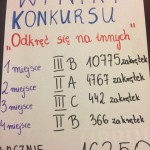 WYNIKI
KONKURSU
"Odkręć się na innych"
1 miejsce III B 10775 zakrętek
2 miejsce II A 4767 zakrętek
3 miejsce III C 442 zakrętek
4 miejsce II B 366 zakrętek